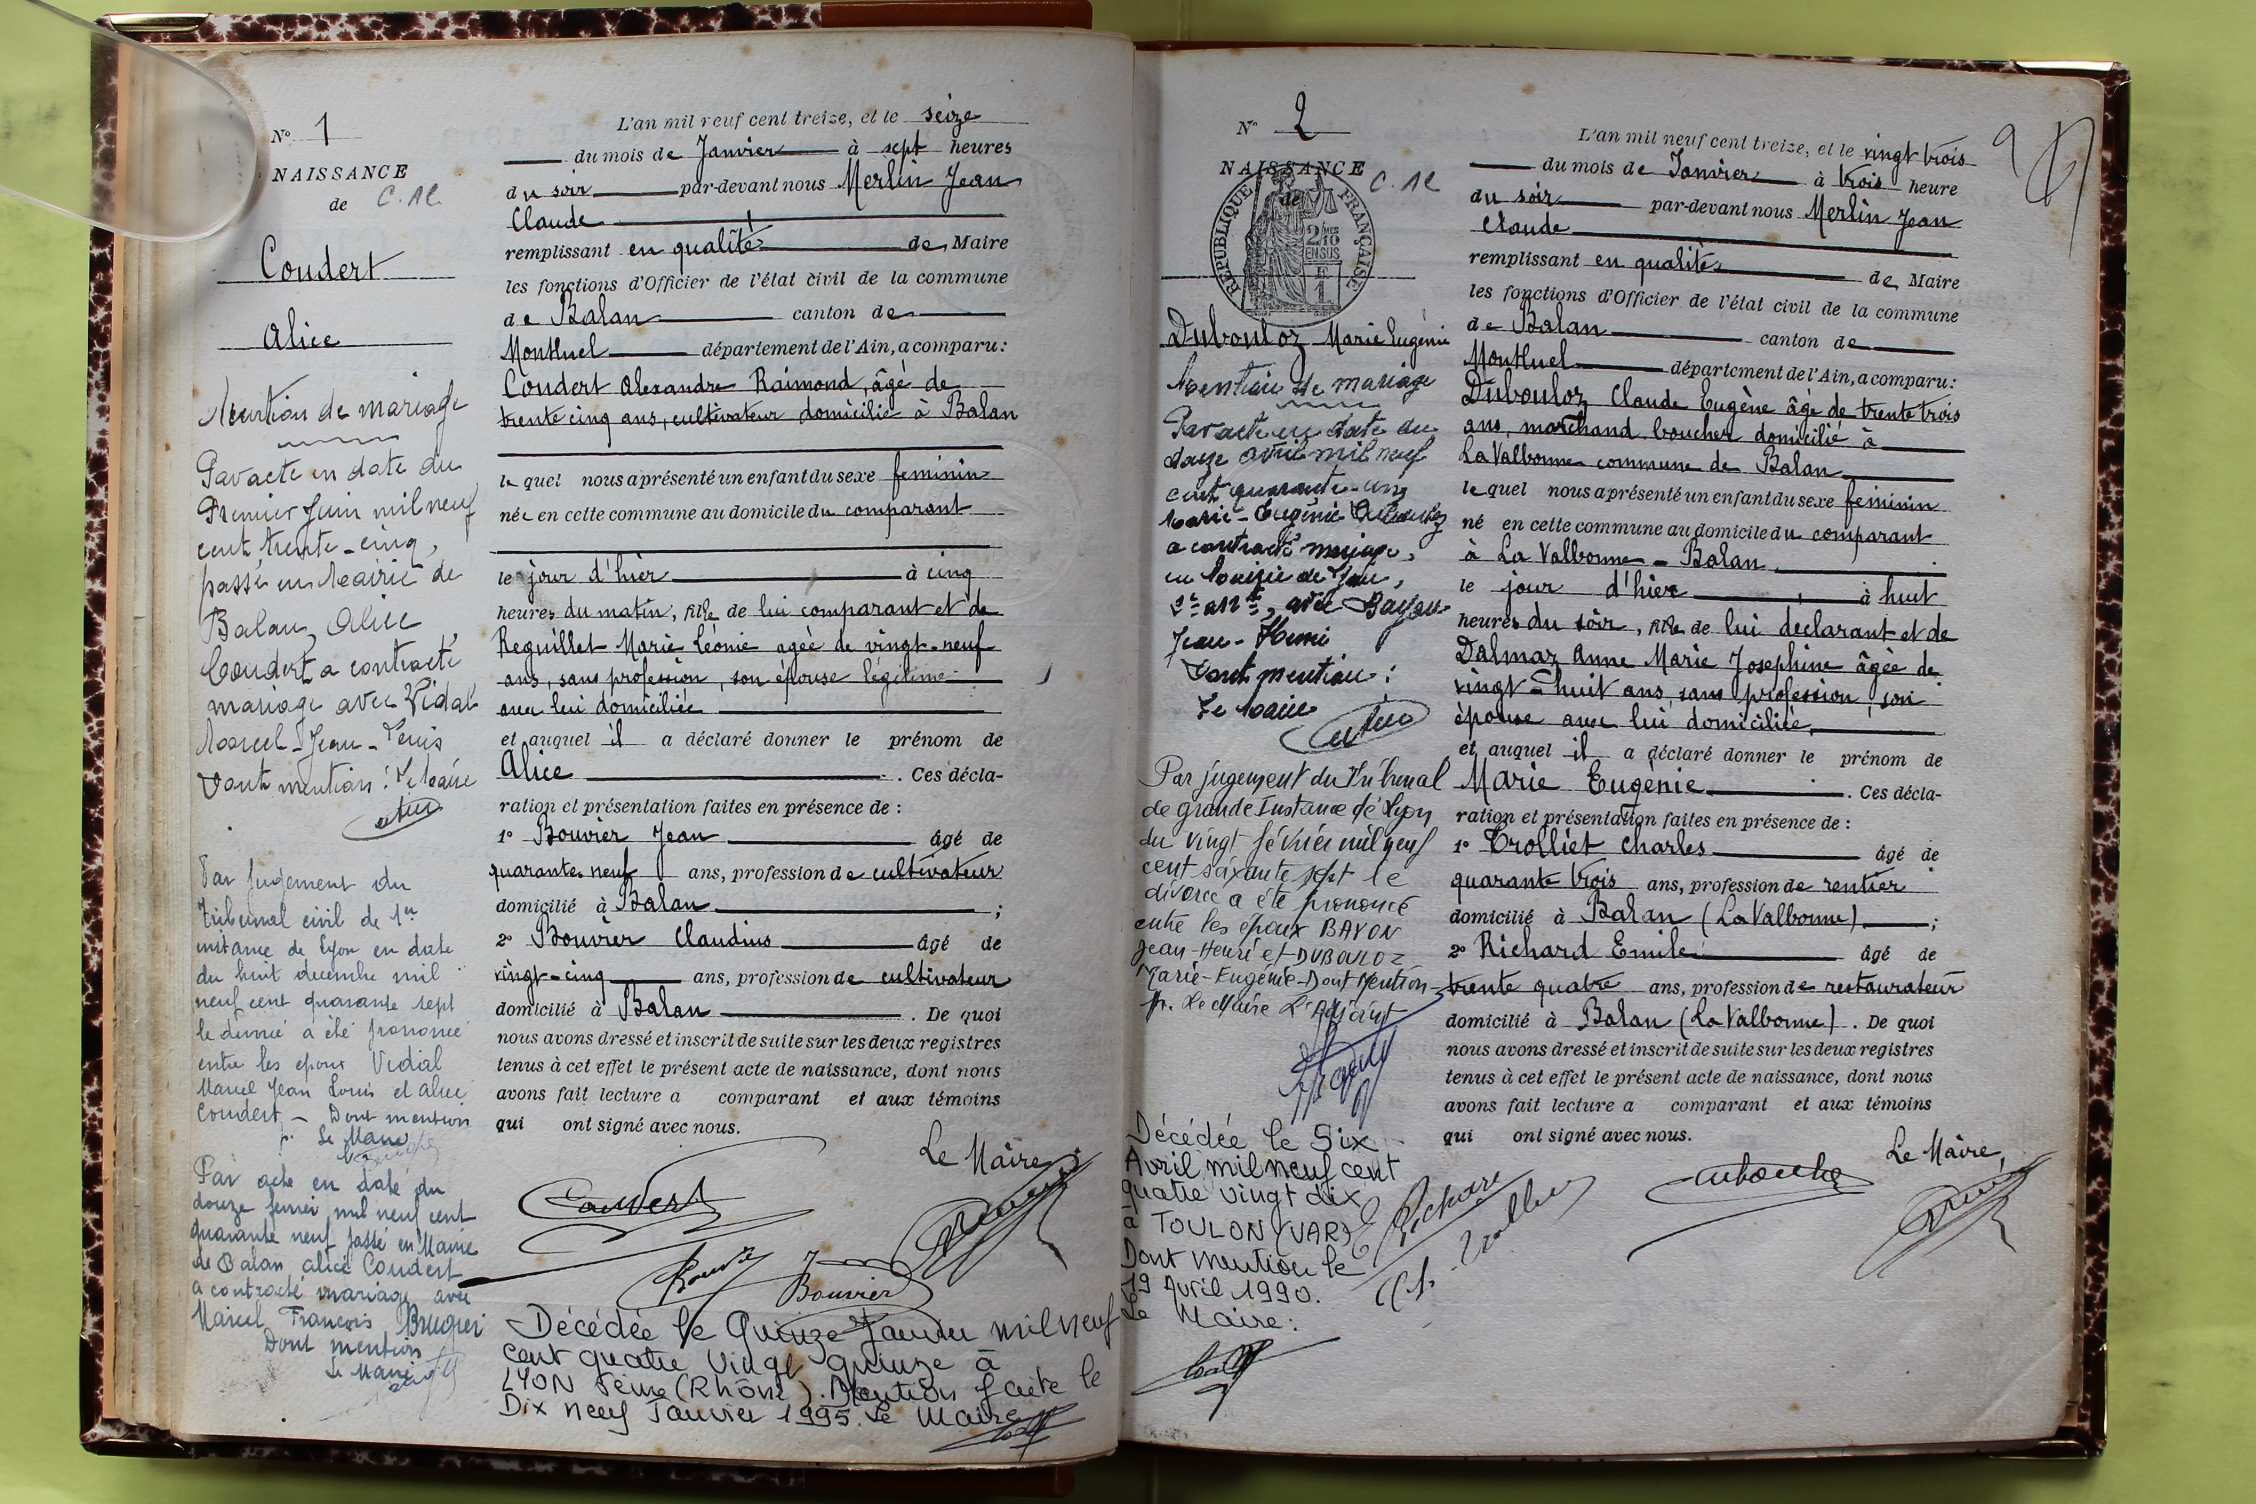 N° 1
NAISSANCE
de C. M.
Coudert
Alice
Mention de mariage
Par acte en date du
Premier Juin mil neuf
cent trente-cinq,
passé en Mairie de
Balan, Alice
Coudert a contracté
mariage avec Vidal
Marcel-Jean-Louis
Dont mention : Le Maire
Par Jugement du
Tribunal civil de 1er
instance de Lyon en date
du huit décembre mil
neuf cent quarante sept
le divorce a été prononcé
entre les époux Vidal
Marcel Jean Louis et Alice
Coudert – Dont mention
p. Le Maire
Par acte en date du
douze février mil neuf cent
quarante neuf passé en Mairie
de Balan Alice Coudert
a contracté mariage avec
Marcel François
Dont mention
Le Maire
L'an mil neuf cent treize, et le seize
du mois de Janvier à sept heures
du soir par-devant nous Merlin Jean
Claude
remplissant en qualité de Maire
les fonctions d'Officier de l'état civil de la commune
de Balan canton de
Montluel département de l'Ain, a comparu :
Coudert Alexandre Raimond, âgé de
trente cinq ans, cultivateur domicilié à Balan
le quel nous a présenté un enfant du sexe feminin
née en cette commune au domicile du comparant
le jour d'hier à cinq
heures du matin, fille de lui comparant et de
Reguillet Marie Léonie agée de vingt-neuf
ans, sans profession, son épouse légitime
avec lui domiciliée
et auquel il a déclaré donner le prénom de
Alice . Ces décla-
ration et présentation faites en présence de :
1° Bouvier Jean âgé de
quarante neuf ans, profession de cultivateur
domicilié à Balan ;
2° Bouvier Claudius âgé de
vingt-cinq ans, profession de cultivateur
domicilié à Balan . De quoi
nous avons dressé et inscrit de suite sur les deux registres
tenus à cet effet le présent acte de naissance, dont nous
avons fait lecture a comparant et aux témoins
qui ont signé avec nous.
Le Maire
Coudert
Bouvier
Décédée le Quinze Janvier mil neuf
cent quatre vingt quinze à
LYON 8ème (Rhône). Mention faite le
Dix neuf Janvier 1995. Le Maire
N° 2
NAISSANCE
de C. M.
RÉPUBLIQUE FRANÇAISE
2/10
EN SUS
E
1
Dubouloz Marie Eugénie
Mention de mariage
Par acte en date du
douze avril mil neuf
cent quarante-cinq
Marie-Eugénie Dubouloz
a contracté mariage,
en Mairie de Lyon,
arrt, avec Bayon
Jean-Henri
Dont mention :
Le Maire
Par jugement du Tribunal
de grande Instance de Lyon
du vingt février mil neuf
cent soixante sept le
divorce a été prononcé
entre les époux BAYON
Jean-Henri et DUBOULOZ
Marie-Eugénie - Dont Mention -
Pr. Le Maire L'Adjoint
Décédée le Six
Avril mil neuf cent
quatre vingt dix
à TOULON (VAR)
Dont mention le
19 Avril 1990.
Le Maire :
L'an mil neuf cent treize, et le vingt trois
du mois de Janvier à trois heure
du soir par-devant nous Merlin Jean
Claude
remplissant en qualité de Maire
les fonctions d'Officier de l'état civil de la commune
de Balan canton de
Montluel département de l'Ain, a comparu :
Dubouloz Claude Eugène âgé de trente trois
ans, marchand boucher domicilié à
La Valbonne commune de Balan
le quel nous a présenté un enfant du sexe feminin
né en cette commune au domicile du comparant
à La Valbonne - Balan,
le jour d'hier à huit
heures du soir, fille de lui declarant et de
Dalmaz Anne Marie Josephine âgée de
vingt-huit ans, sans profession, son
épouse avec lui domiciliée,
et auquel il a déclaré donner le prénom de
Marie Eugénie . Ces décla-
ration et présentation faites en présence de :
1° Trolliet Charles âgé de
quarante trois ans, profession de rentier
domicilié à Balan (La Valbonne) ;
2° Richard Emile âgé de
trente quatre ans, profession de restaurateur
domicilié à Balan (La Valbonne) . De quoi
nous avons dressé et inscrit de suite sur les deux registres
tenus à cet effet le présent acte de naissance, dont nous
avons fait lecture a comparant et aux témoins
qui ont signé avec nous.
Le Maire,
E Richard
Ch. Trolliet